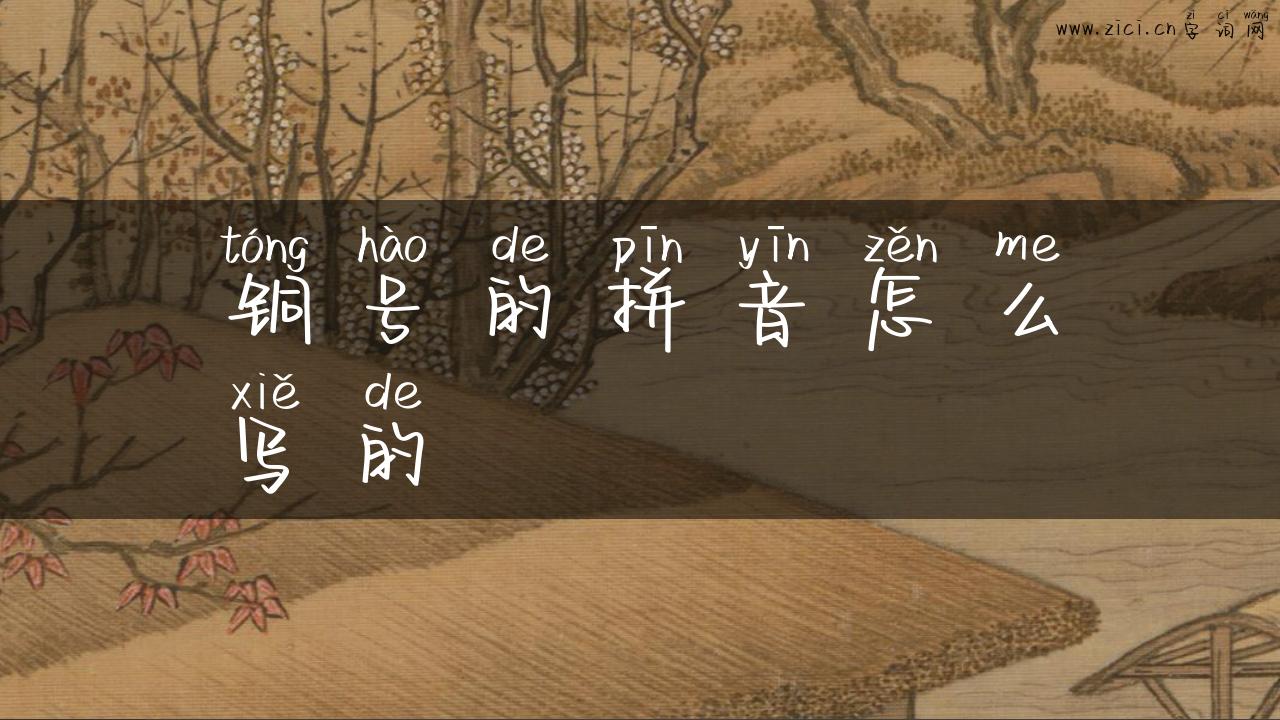 zì cí wǎng
www.zici.cn 字 词 网
tóng hào de pīn yīn zěn me
铜 号 的 拼 音 怎 么
xiě de
写 的